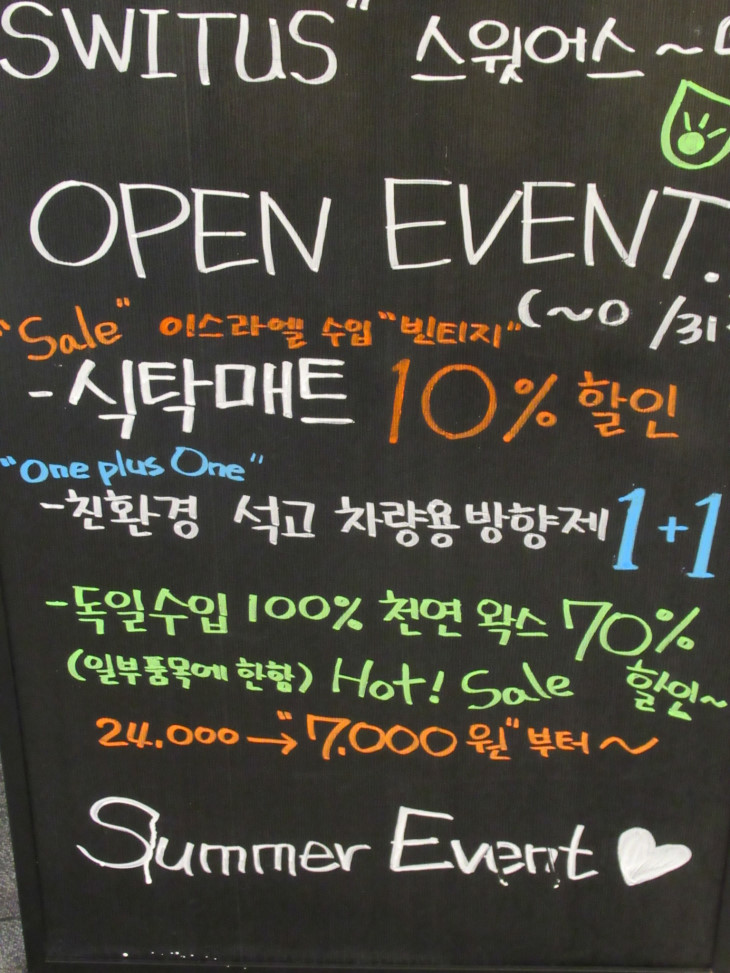 SWITUS" 스윗어스~
OPEN EVENT.
(~ 0/31
"Sale" 이스라엘 수입 "빈티지"
-식탁매트 10% 할인
"One plus One"
-친환경 석고 차량용 방향제 1+1
-독일수입 100% 천연 왁스 70%
(일부품목에 한함) Hot! Sale 할인~
24.000→"7.000원"부터~
Summer Event